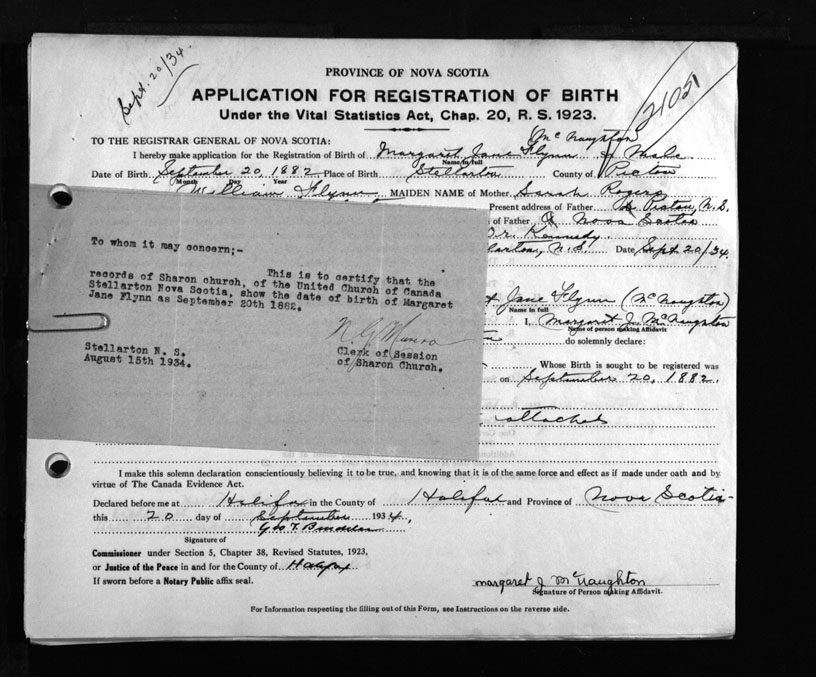 Sept. 20/34.
21051
PROVINCE OF NOVA SCOTIA
APPLICATION FOR REGISTRATION OF BIRTH
Under the Vital Statistics Act, Chap. 20, R. S. 1923.
TO THE REGISTRAR GENERAL OF NOVA SCOTIA:
Mc Naughton
I hereby make application for the Registration of Birth of Margaret Jane Flynn Sex Male
Name in full
Date of Birth September 20, 1882 Place of Birth Stellarton County of Pictou
Month Day Year
William Flynn MAIDEN NAME of Mother Sarah Rogers
Present address of Father Pictou, N.S.
of Father Nova Scotia
Dr. Kennedy.
N.S. Date Sept. 20/34.
To whom it may concern;-
This is to certify that the
records of Sharon church, of the United Church of Canada
Stellarton Nova Scotia, show the date of birth of Margaret
Jane Flynn as September 20th 1882.
Stellarton N. S.
August 15th 1934.
N. G. Munro
Clerk of Session
of Sharon Church.
Jane Flynn (McNaughton)
Name in full
I, Margaret J. McNaughton
Name of person making Affidavit
do solemnly declare:
Whose Birth is sought to be registered was
on September 20, 1882.
attached
I make this solemn declaration conscientiously believing it to be true, and knowing that it is of the same force and effect as if made under oath and by
virtue of The Canada Evidence Act.
Declared before me at Halifax in the County of Halifax and Province of Nova Scotia
this 20 day of September 1934,
Signature of
Commissioner under Section 5, Chapter 38, Revised Statutes, 1923,
or Justice of the Peace in and for the County of Halifax
If sworn before a Notary Public affix seal.
margaret J McNaughton
Signature of Person making Affidavit.
For Information respecting the filling out of this Form, see Instructions on the reverse side.